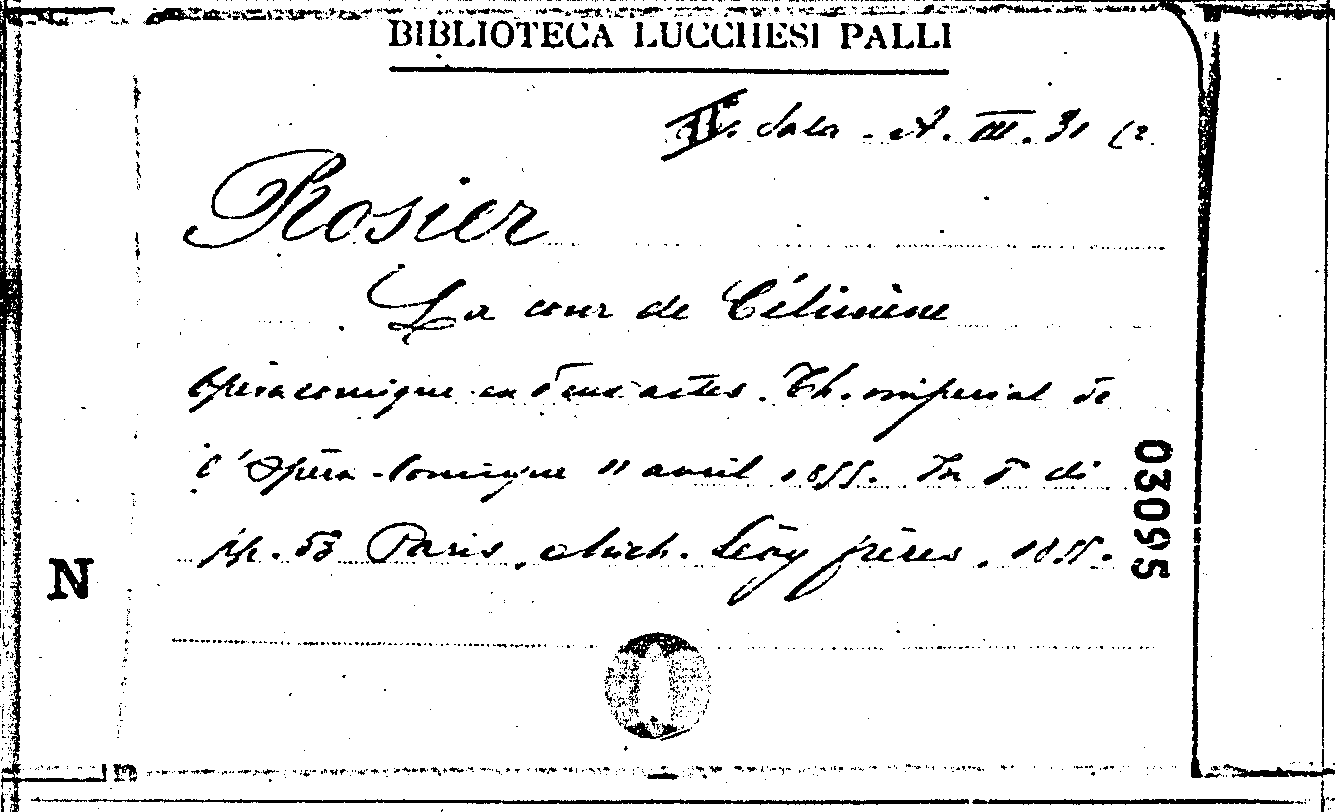 BIBLIOTECA LUCCHESI PALLI
II. Sala. A. III. 31 (2
Rosier
La cour de Célimène
Opéra comique en deux actes. Th. impérial de
l'Opéra-Comique 11 avril 1855. In 8 di
p. 53 Paris, Mich. Lévy frères, 1855.
03095
N